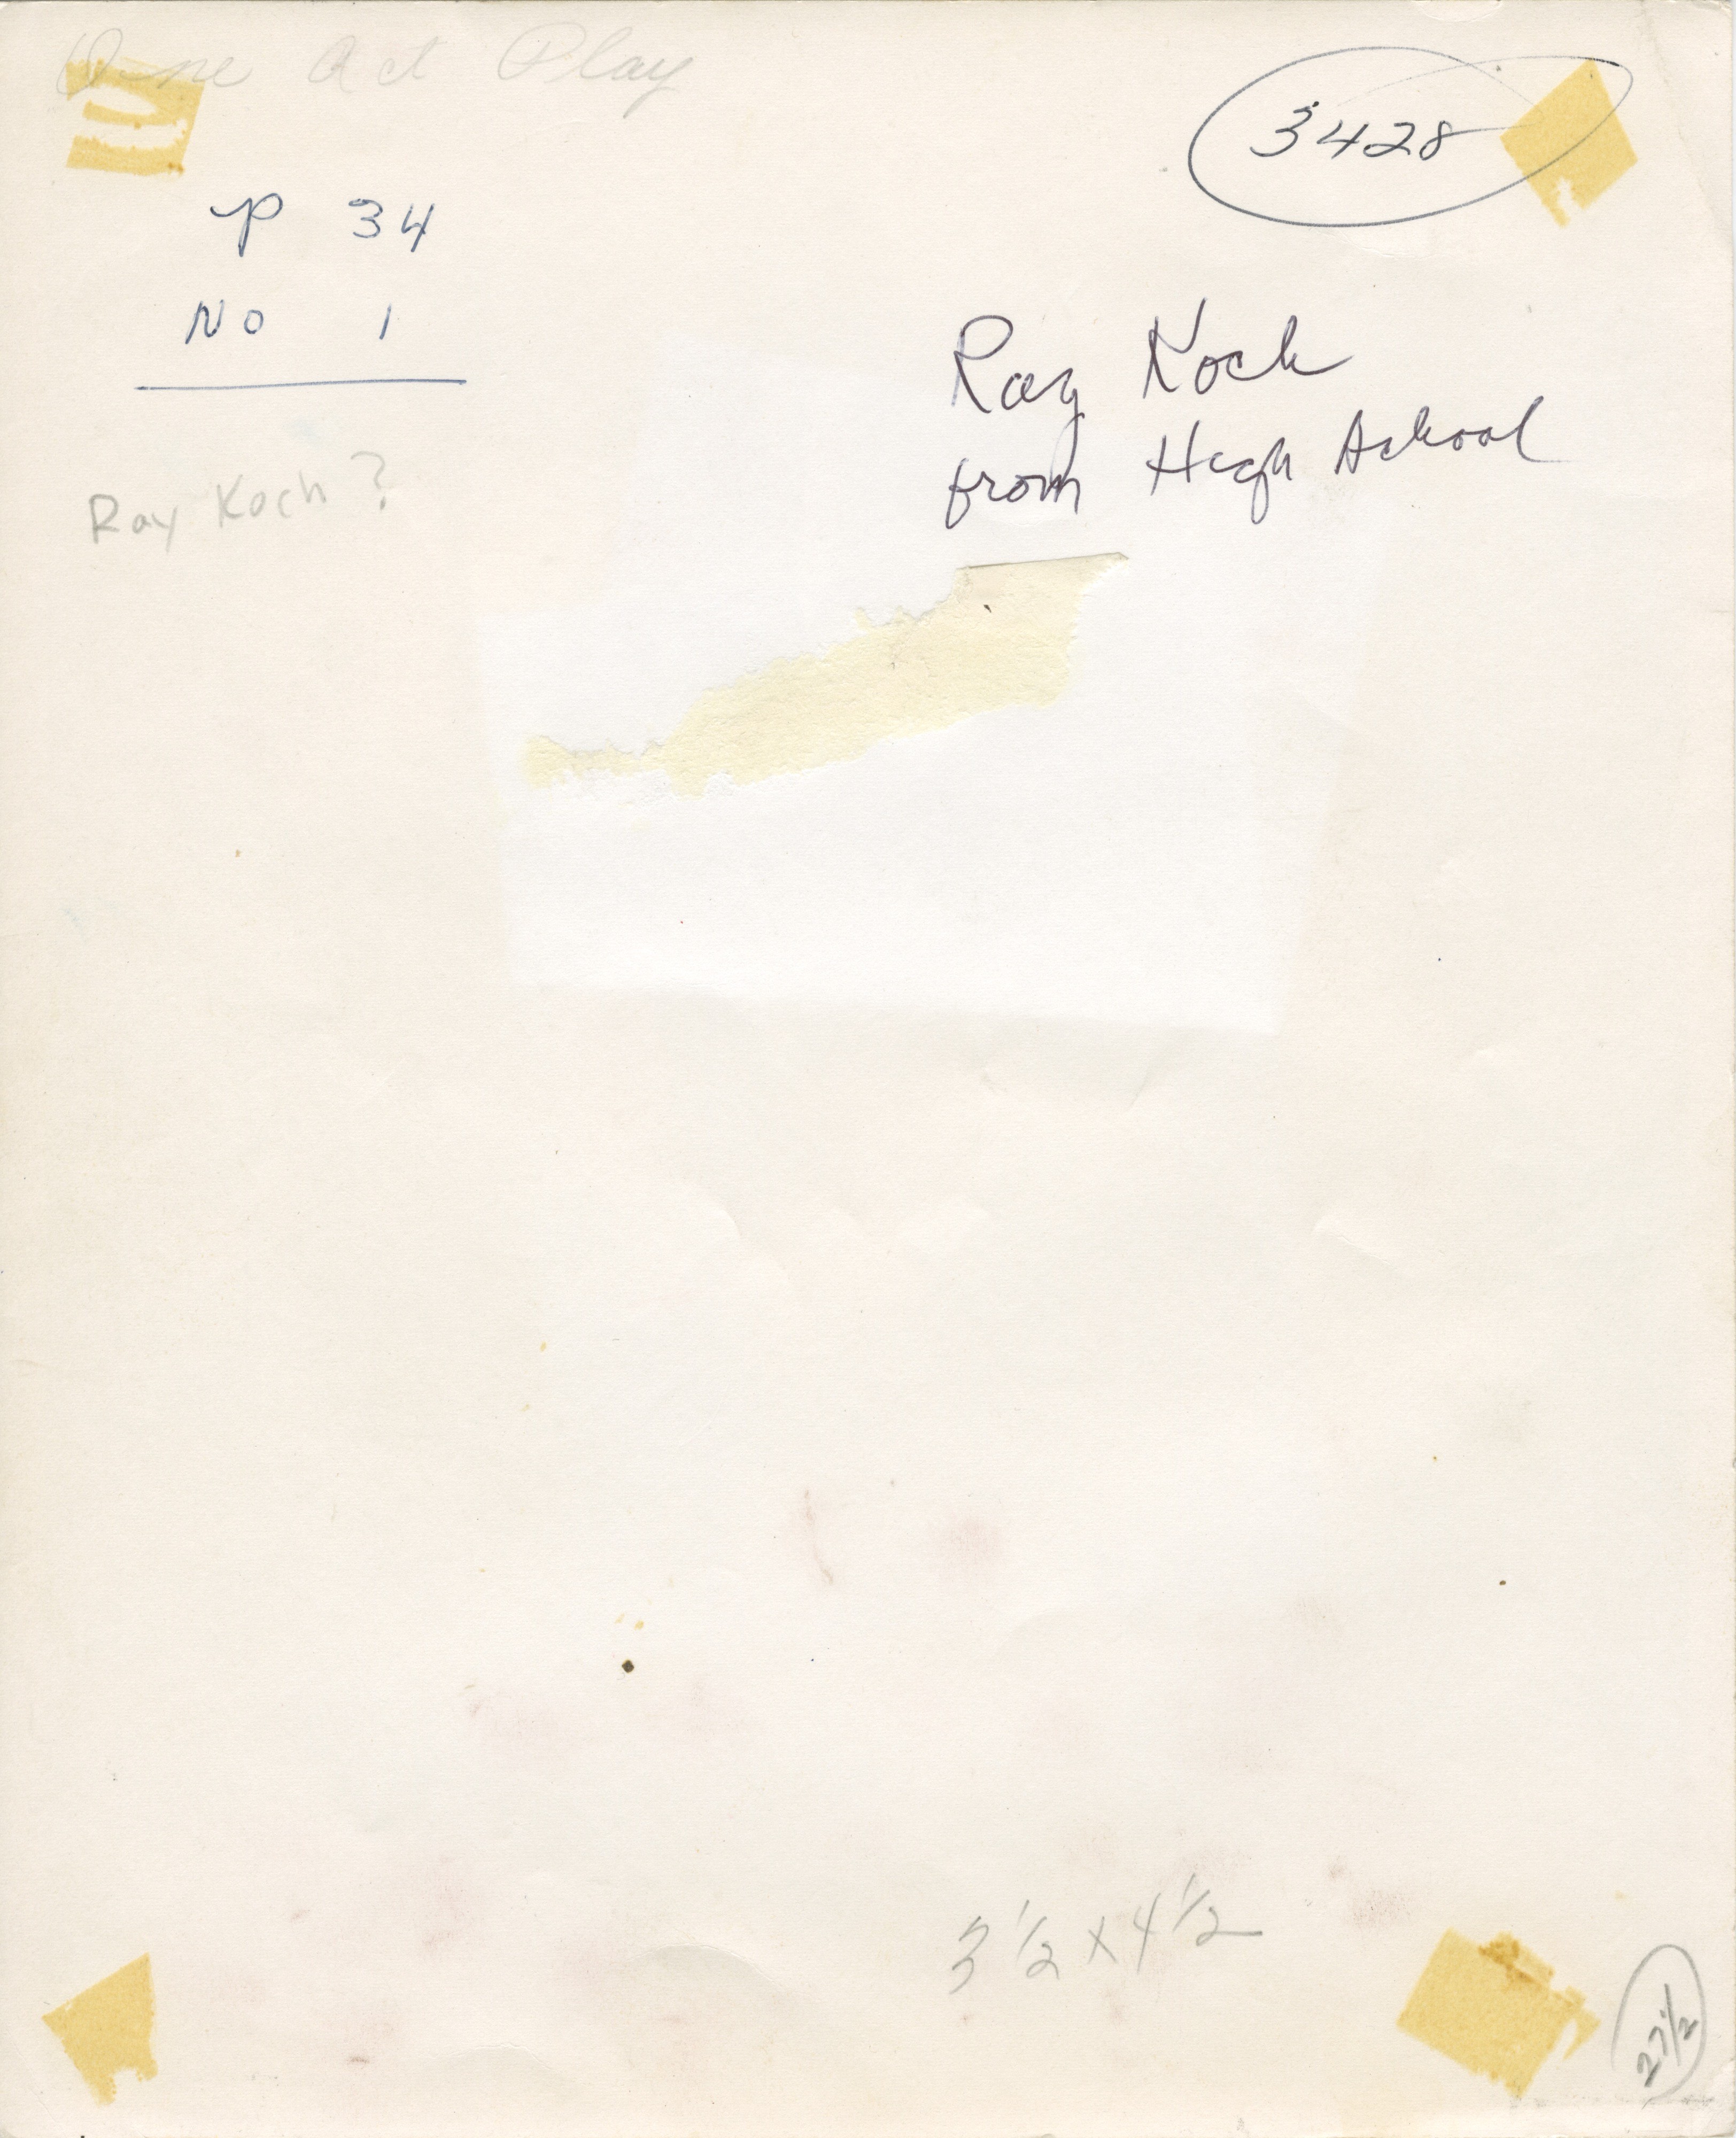 One Act Play
3428
P 34
No 1
Ray Koch
from High School
Ray Koch ?
3 1/2 x 4 1/2
27 1/2